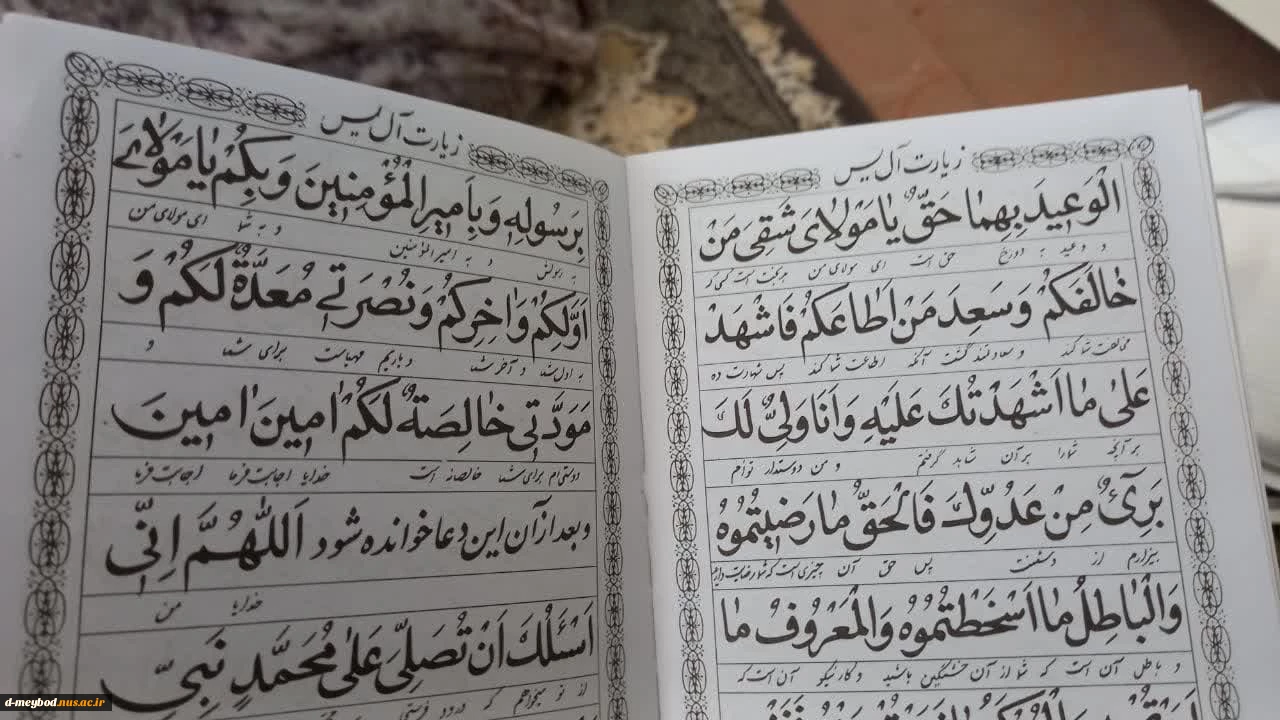 زیارت آل یس
الْوَعیدَ بِهِمٰا حَقٌّ یٰا مَوْلاٰیَ شَقِیَ مَنْ
و وعید به دوزخ حق است ای مولای من هر که
خٰالَفَکُمْ وَ سَعِدَ مَنْ اَطٰاعَکُمْ فَاشْهَدْ
مخالفت شما کند و سعادتمند گشت آنکه اطاعت شما کند پس شهادت ده
عَلیٰ مٰا اَشْهَدْتُکَ عَلَیْهِ وَ اَنَا وَلِیٌّ لَکَ
بر آنچه شما را بر آن شاهد گرفتم و من دوستدار توام
بَرِیٓءٌ مِنْ عَدُوِّکَ فَالْحَقُّ مٰا رَضیتُمُوهُ
بیزارم از دشمنت پس حق آن چیزی است که شما رضایت دارید
وَالْبٰاطِلُ مٰا اَسْخَطْتُمُوهُ وَالْمَعْرُوفُ مٰا
و باطل آن است که شما از آن خشمگین باشید و کار نیکو آن است که
زیارت آل یس
بِرَسُولِهِ وَ بِاَمیرِ الْمُؤْمِنینَ وَ بِکُمْ یٰا مَوْلاٰیَ
به رسولش و به امیرالمؤمنین و به شما ای مولای من
اَوَّلِکُمْ وَ اٰخِرِکُمْ وَ نُصْرَتی مُعَدَّةٌ لَکُمْ وَ
به اول شما و آخر شما و یاریم مهیاست برای شما و
مَوَدَّتی خٰالِصَةٌ لَکُمْ اٰمینَ اٰمینَ
دوستی‌ام برای شما خالصانه است خدایا اجابت فرما اجابت فرما
و بعد از آن این دعا خوانده شود اَللّٰهُمَّ اِنّی
خدایا من
اَسْئَلُکَ اَنْ تُصَلِّیَ عَلیٰ مُحَمَّدٍ نَبِیِّ
از تو میخواهم که درود فرستی
d-meybod.nus.ac.ir